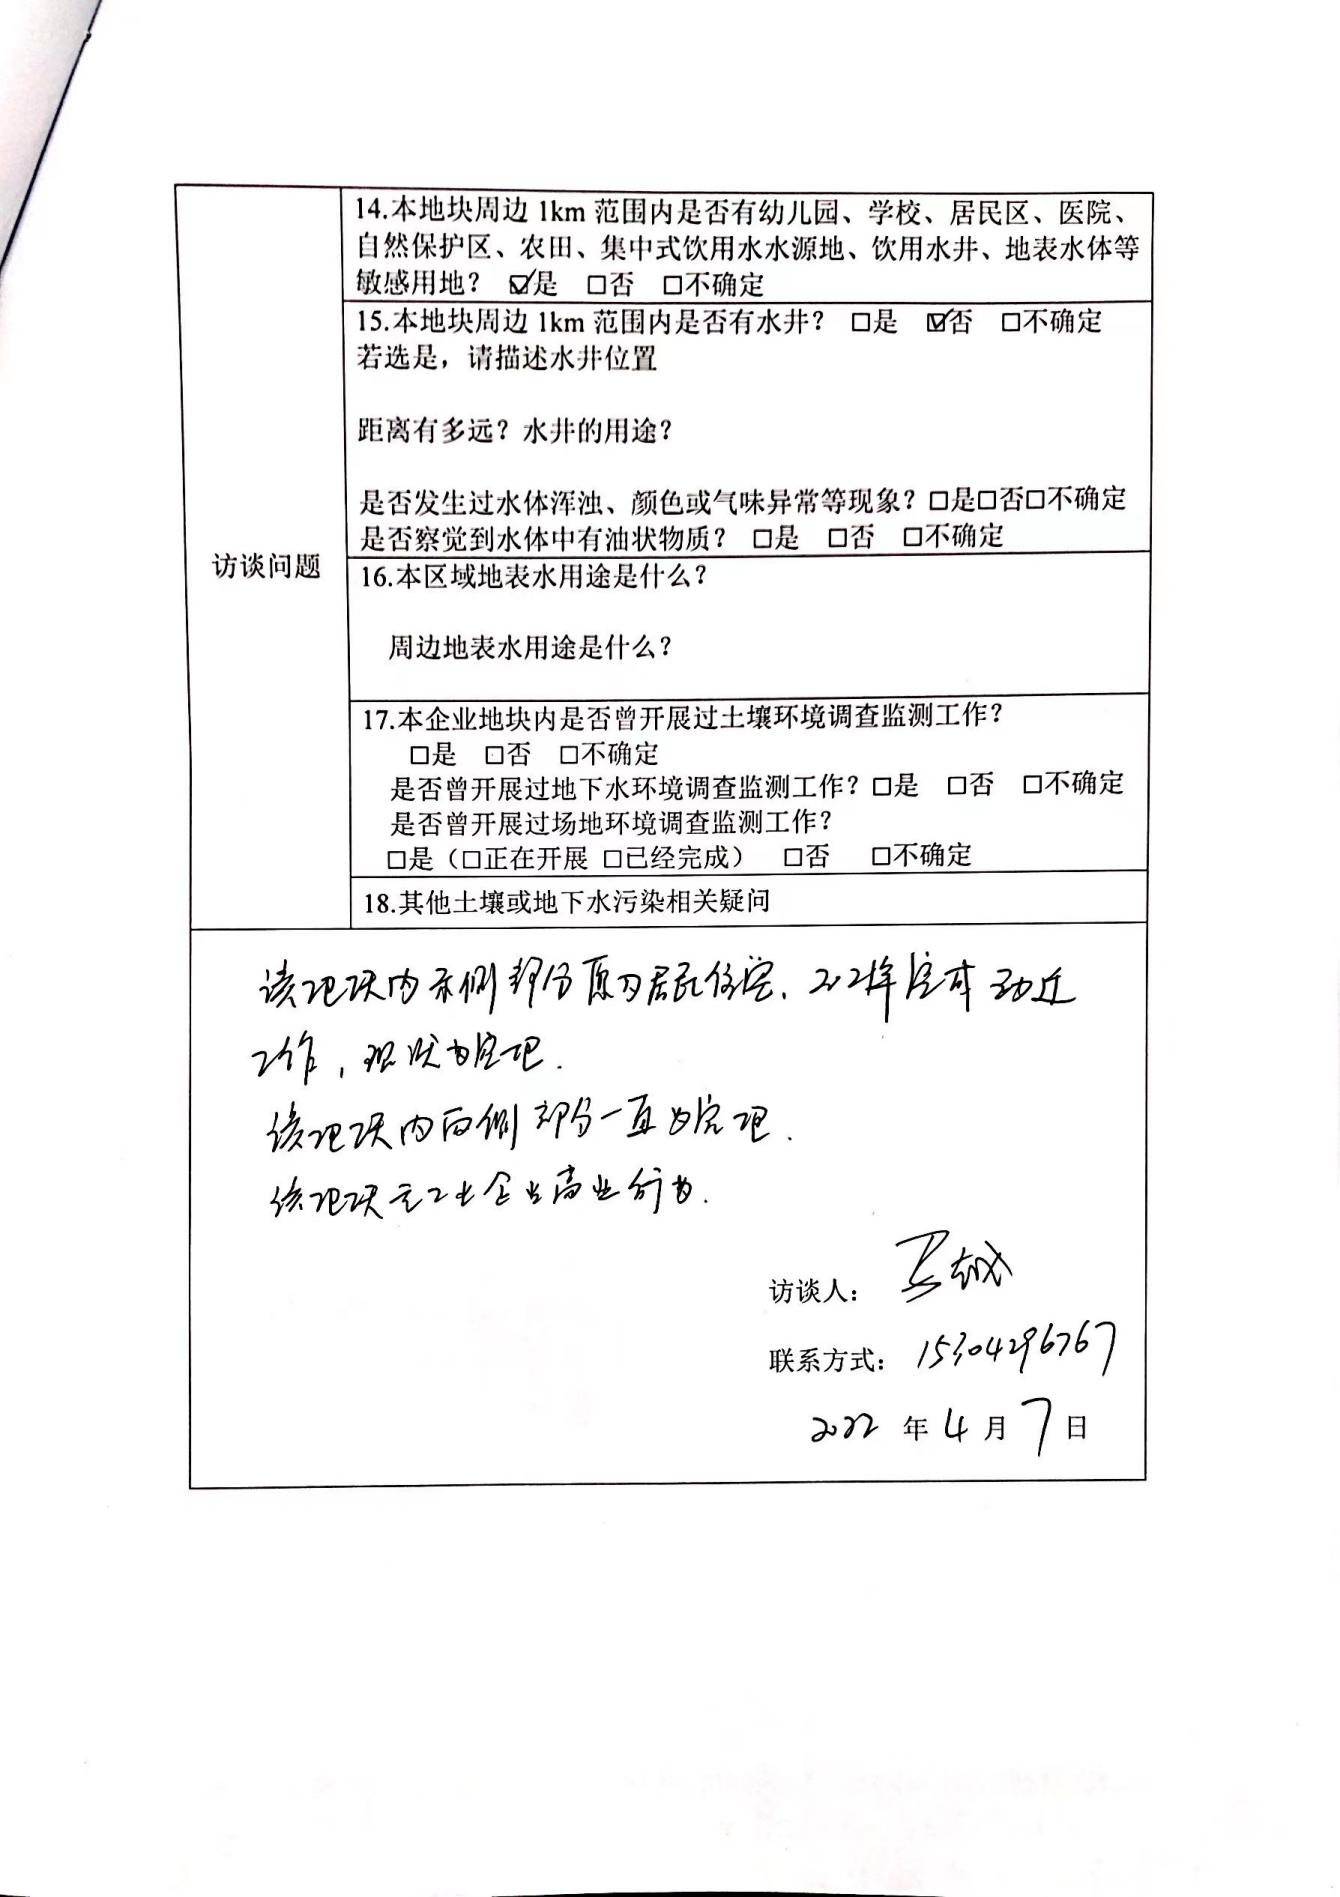 14.本地块周边 1km 范围内是否有幼儿园、学校、居民区、医院、
自然保护区、农田、集中式饮用水水源地、饮用水井、地表水体等
敏感用地？ ☑是 □否 □不确定
15.本地块周边 1km 范围内是否有水井？ □是 ☑否 □不确定
若选是，请描述水井位置
距离有多远？水井的用途？
是否发生过水体浑浊、颜色或气味异常等现象？□是□否□不确定
是否察觉到水体中有油状物质？ □是 □否 □不确定
访谈问题
16.本区域地表水用途是什么？
周边地表水用途是什么？
17.本企业地块内是否曾开展过土壤环境调查监测工作？
□是 □否 □不确定
是否曾开展过地下水环境调查监测工作？□是 □否 □不确定
是否曾开展过场地环境调查监测工作？
□是（□正在开展 □已经完成） □否 □不确定
18.其他土壤或地下水污染相关疑问
该地块内东侧部分原为居民住宅，2021年完成动迁
工作，现状为空地．
该地块内西侧部分一直为空地．
该地块无工业企业商业行为．
访谈人：
联系方式：15304296767
2022 年 4 月 7 日